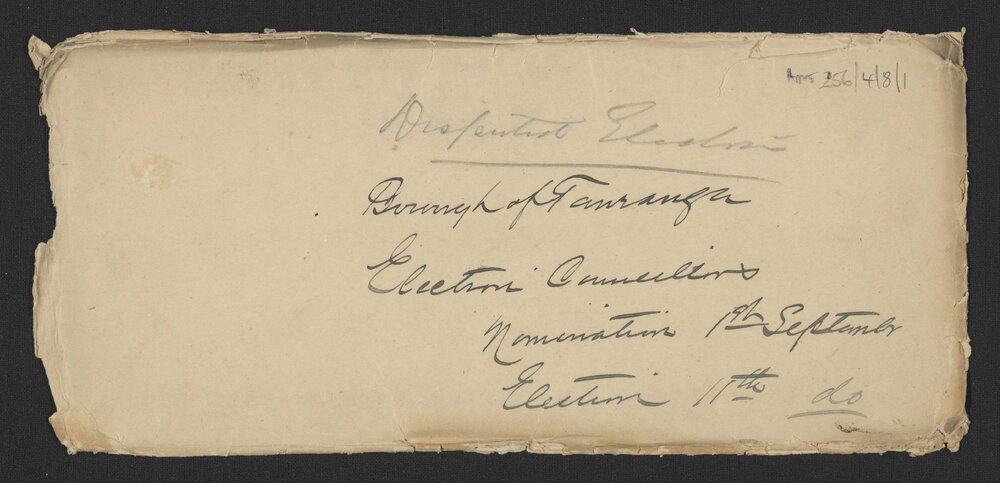 Ams 256/4/8/1
Disputed Election
Borough of Tauranga
Election Councillors
Nomination 1st September
Election 11th do